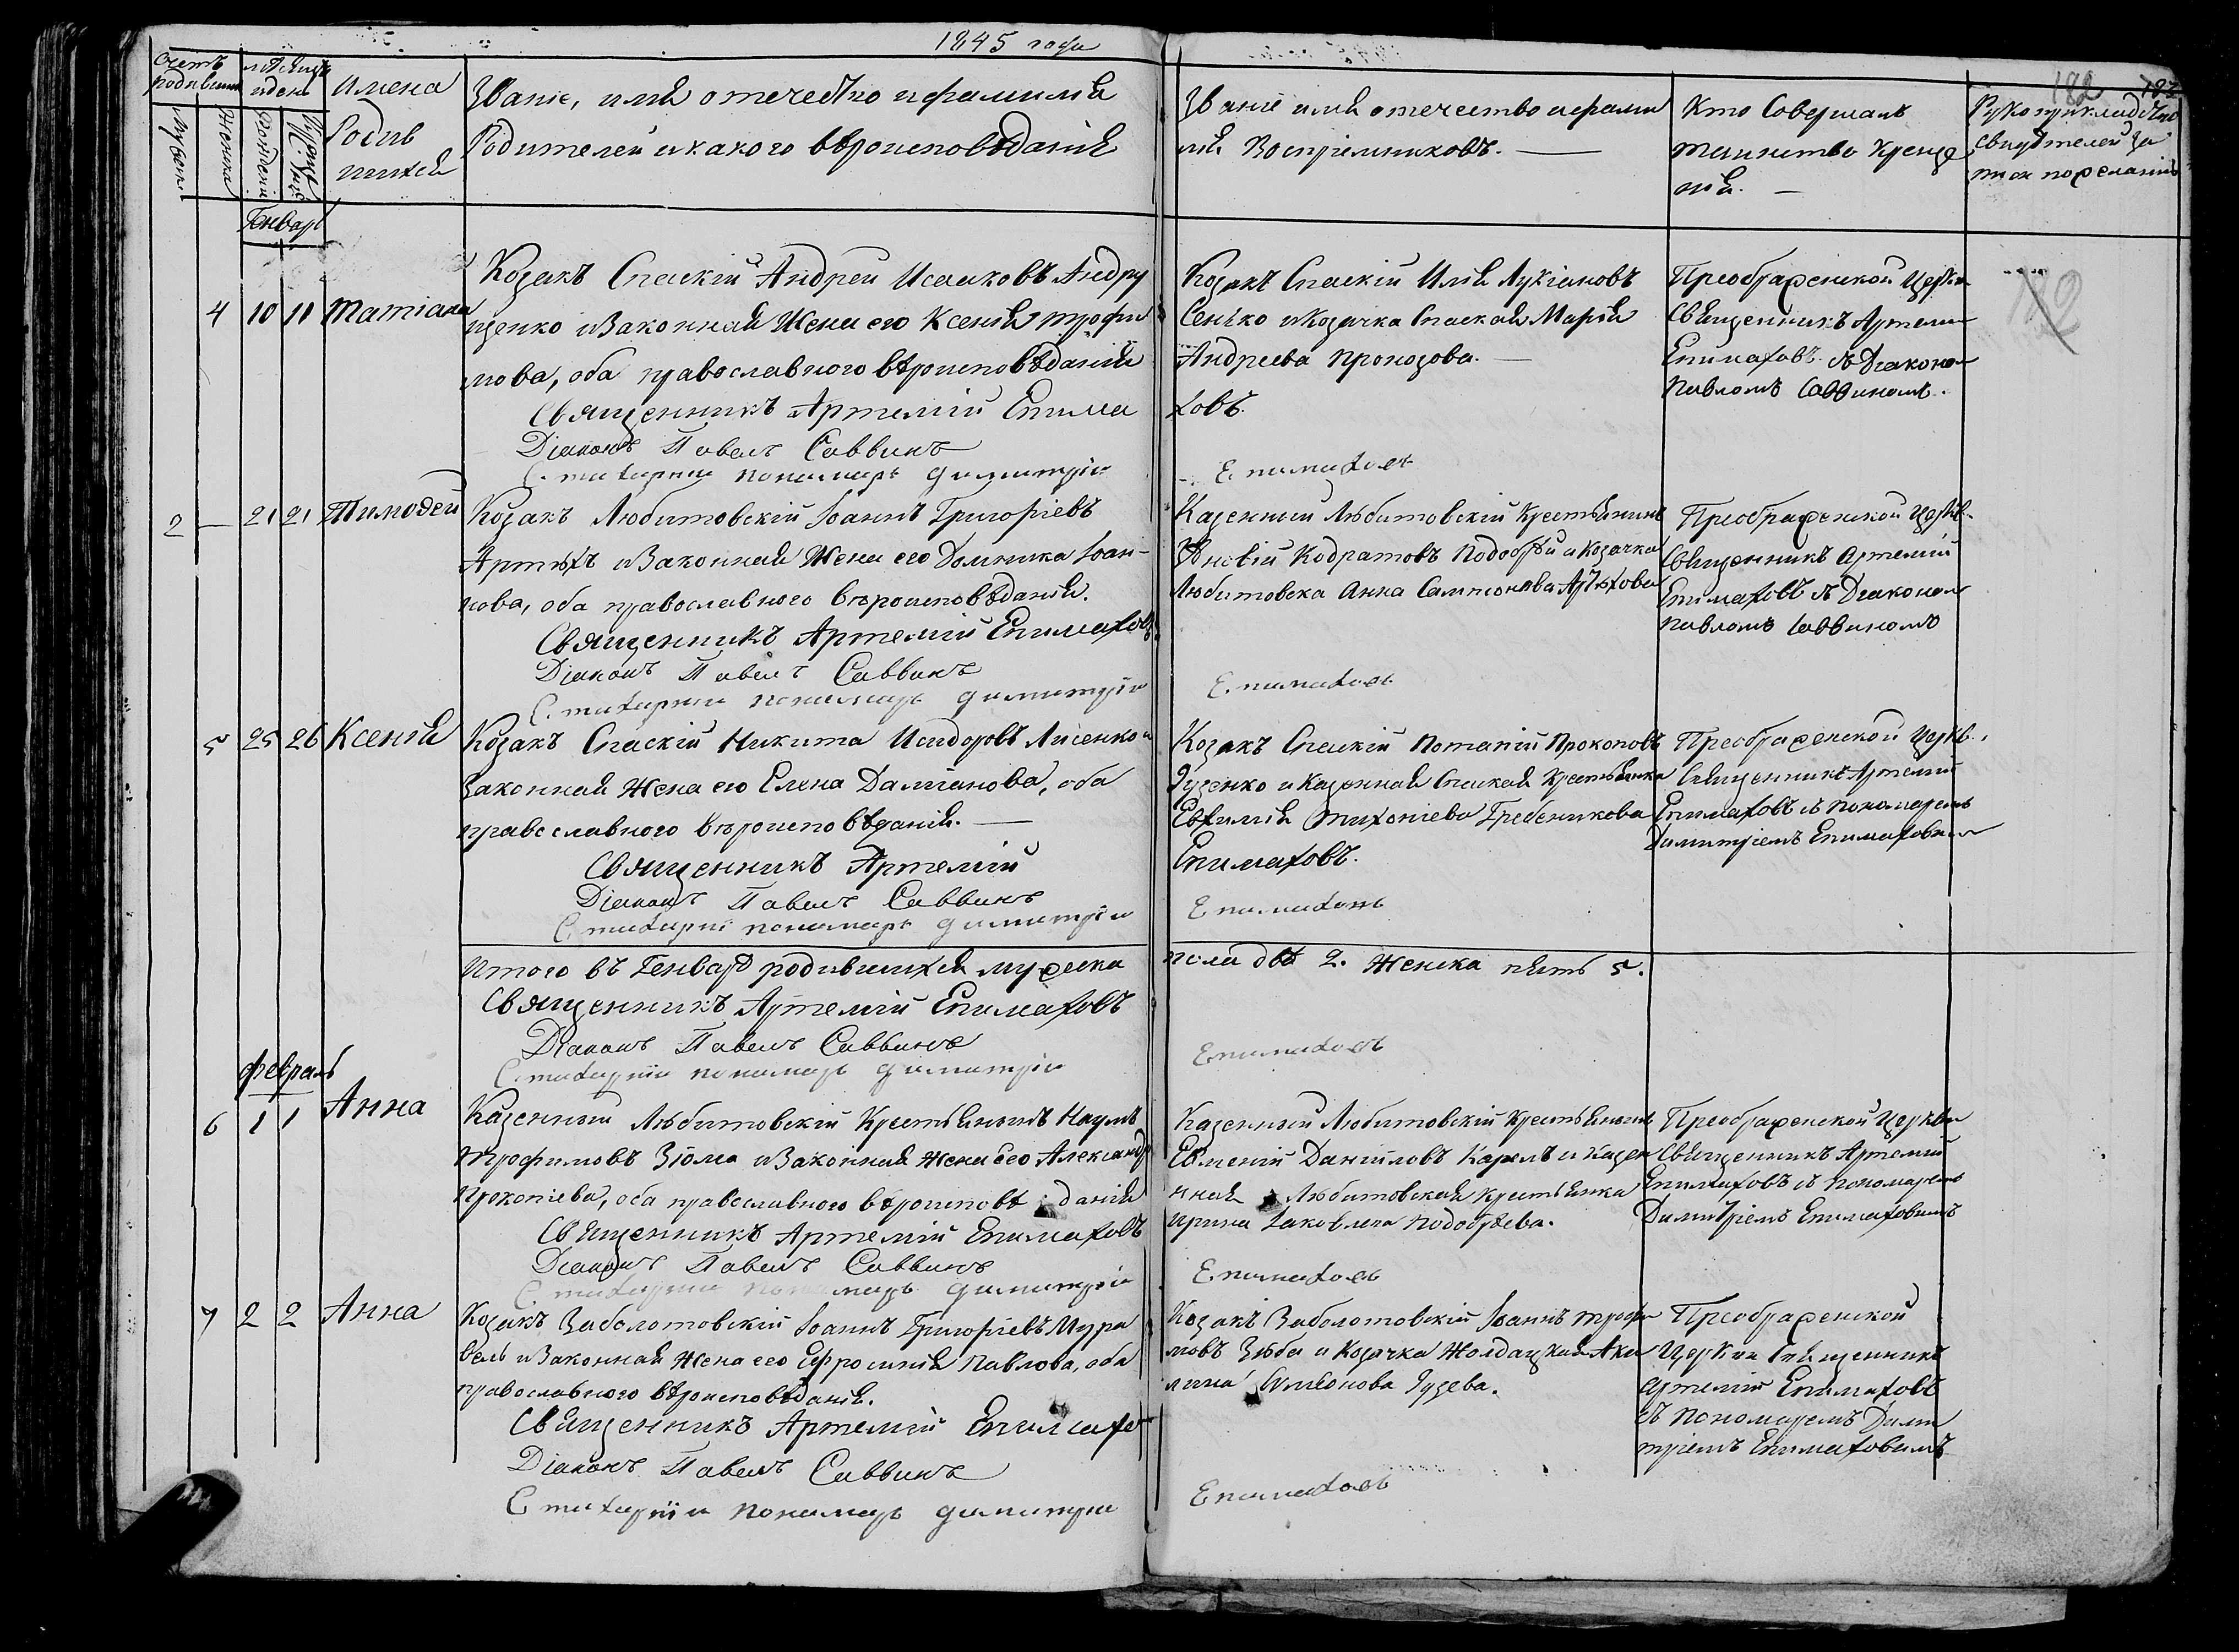 1845 года
182
Счетъ родившихся
Мужеска
Женска
мѣсяцъ и день
рожденія
крещенія
Имена Родившихся
Званіе, имя отечество и фамилія
Родителей и какого вѣроисповѣданія
Званіе имя отечество и фами
лія Воспріемниковъ. —
Кто Совершалъ
таинство Креще
нія. —
Рукоприкладство
свидѣтелей за
писи по желанію
Генварь
182
4 10 11 Татіана
Козакъ Спаскій Андрей Исааковъ Андру
щенко и Законная Жена его Ксенія Трофи
мова, оба православного вѣроисповѣданія
Священникъ Артемій Епима
Діаконъ Павелъ Саввинъ
Стихарный пономарь Димитрій
Козакъ Спаскій Илія Лукіановъ
Сенько и Козачка Спаская Марія
Андреева Прокозова. —
ховъ.
Епимаховъ
Преображенской Церкви
Священникъ Артемій
Епимаховъ съ Діакономъ
Павломъ Саввиномъ.
2 — 21 21 Тимоѳей
Козакъ Любитовскій Іоаннъ Григоріевъ
Артюхъ и Законная Жена его Домника Іоан-
нова, оба православного вѣроисповѣданія.
Священникъ Артемій Епимаховъ
Діаконъ Павелъ Саввинъ
Стихарный пономарь Димитрій
Казенный Любитовскій Крестьянинъ
Кодратовъ Подобрѣй и Козачка
Любитовска Анна Сампсонова Артюхова
Епимаховъ
Преображенской Церкв.
Священникъ Артемій
Епимаховъ съ Діакономъ
Павломъ Саввиномъ
5 25 26 Ксенія
Козакъ Спаскій Никита Исидоровъ Лисенко и
Законная Жена его Елена Даміанова, оба
православного вѣроисповѣданія. —
Священникъ Артемій
Діаконъ Павелъ Саввинъ
Стихарный пономарь Димитрій
Козакъ Спаскій Потапій Прокоповъ
Гузенко и Казенная Спаская Крестьянка
Евфимія Тихоніева Гребеникова
Епимаховъ.
Епимаховъ
Преображенской Церкв.
Священникъ Артемій
Епимаховъ съ Пономаремъ
Димитріемъ Епимаховымъ
Итого въ Генварѣ родившихся мужеска
пола два 2. Женска пять 5.
Священникъ Артемій Епимаховъ
Діаконъ Павелъ Саввинъ
Стихарный пономарь Димитрій
Епимаховъ
Февраль
6 1 1 Анна
Казенный Любитовскій Крестьянинъ Наумъ
Трофимовъ Зюма и Законная Жена его Александр
Прокопіева, оба православного вѣроисповѣданія
Священникъ Артемій Епимаховъ
Діаконъ Павелъ Саввинъ
Стихарный пономарь Димитрій
Казенный Любитовскій Крестьянинъ
Евменій Даніиловъ Карель и Казен
ная Любитовская Крестьянка
Ирина Іаковлева Подобрѣева.
Епимаховъ
Преображенской Церкви
Священникъ Артемій
Епимаховъ съ Пономаремъ
Димитріемъ Епимаховымъ
7 2 2 Анна
Козакъ Заболотовскій Іоаннъ Григоріевъ Мура
вель и Законная Жена его Ефросинія Павлова, оба
православного вѣроисповѣданія.
Священникъ Артемій Епимахо
Діаконъ Павелъ Саввинъ
Стихарный пономарь Димитрій
Козакъ Заболотовскій Іоаннъ Трофи
мовъ Зюба и Козачка Жолдацкая Аки
лина Симеонова Гузева.
Епимаховъ
Преображенской
Церкви Священникъ
Артемій Епимаховъ
съ Пономаремъ Дими
тріемъ Епимаховымъ